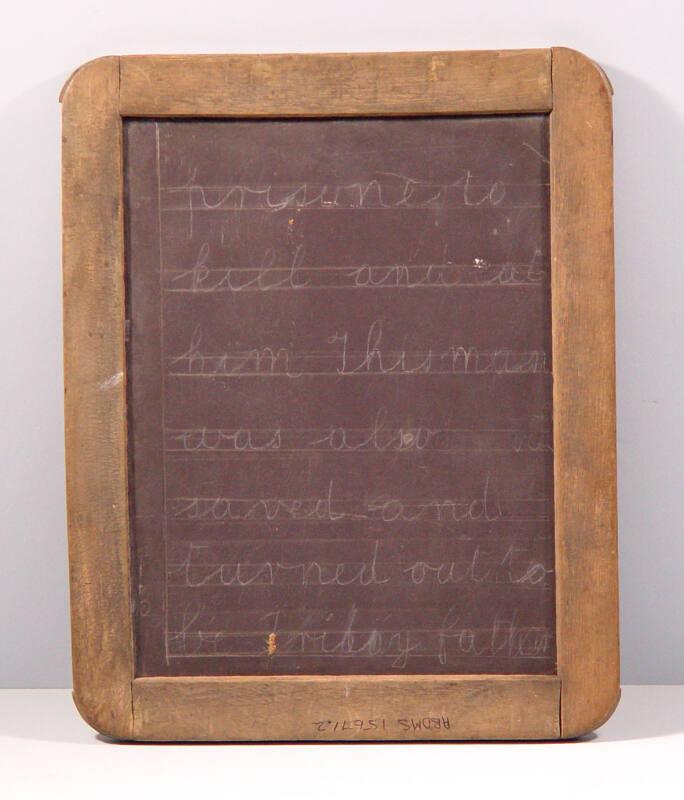 prisone to
kill and eat
him This man
was also
saved and
turned out to
be Friday father
ABDMS 15671.2